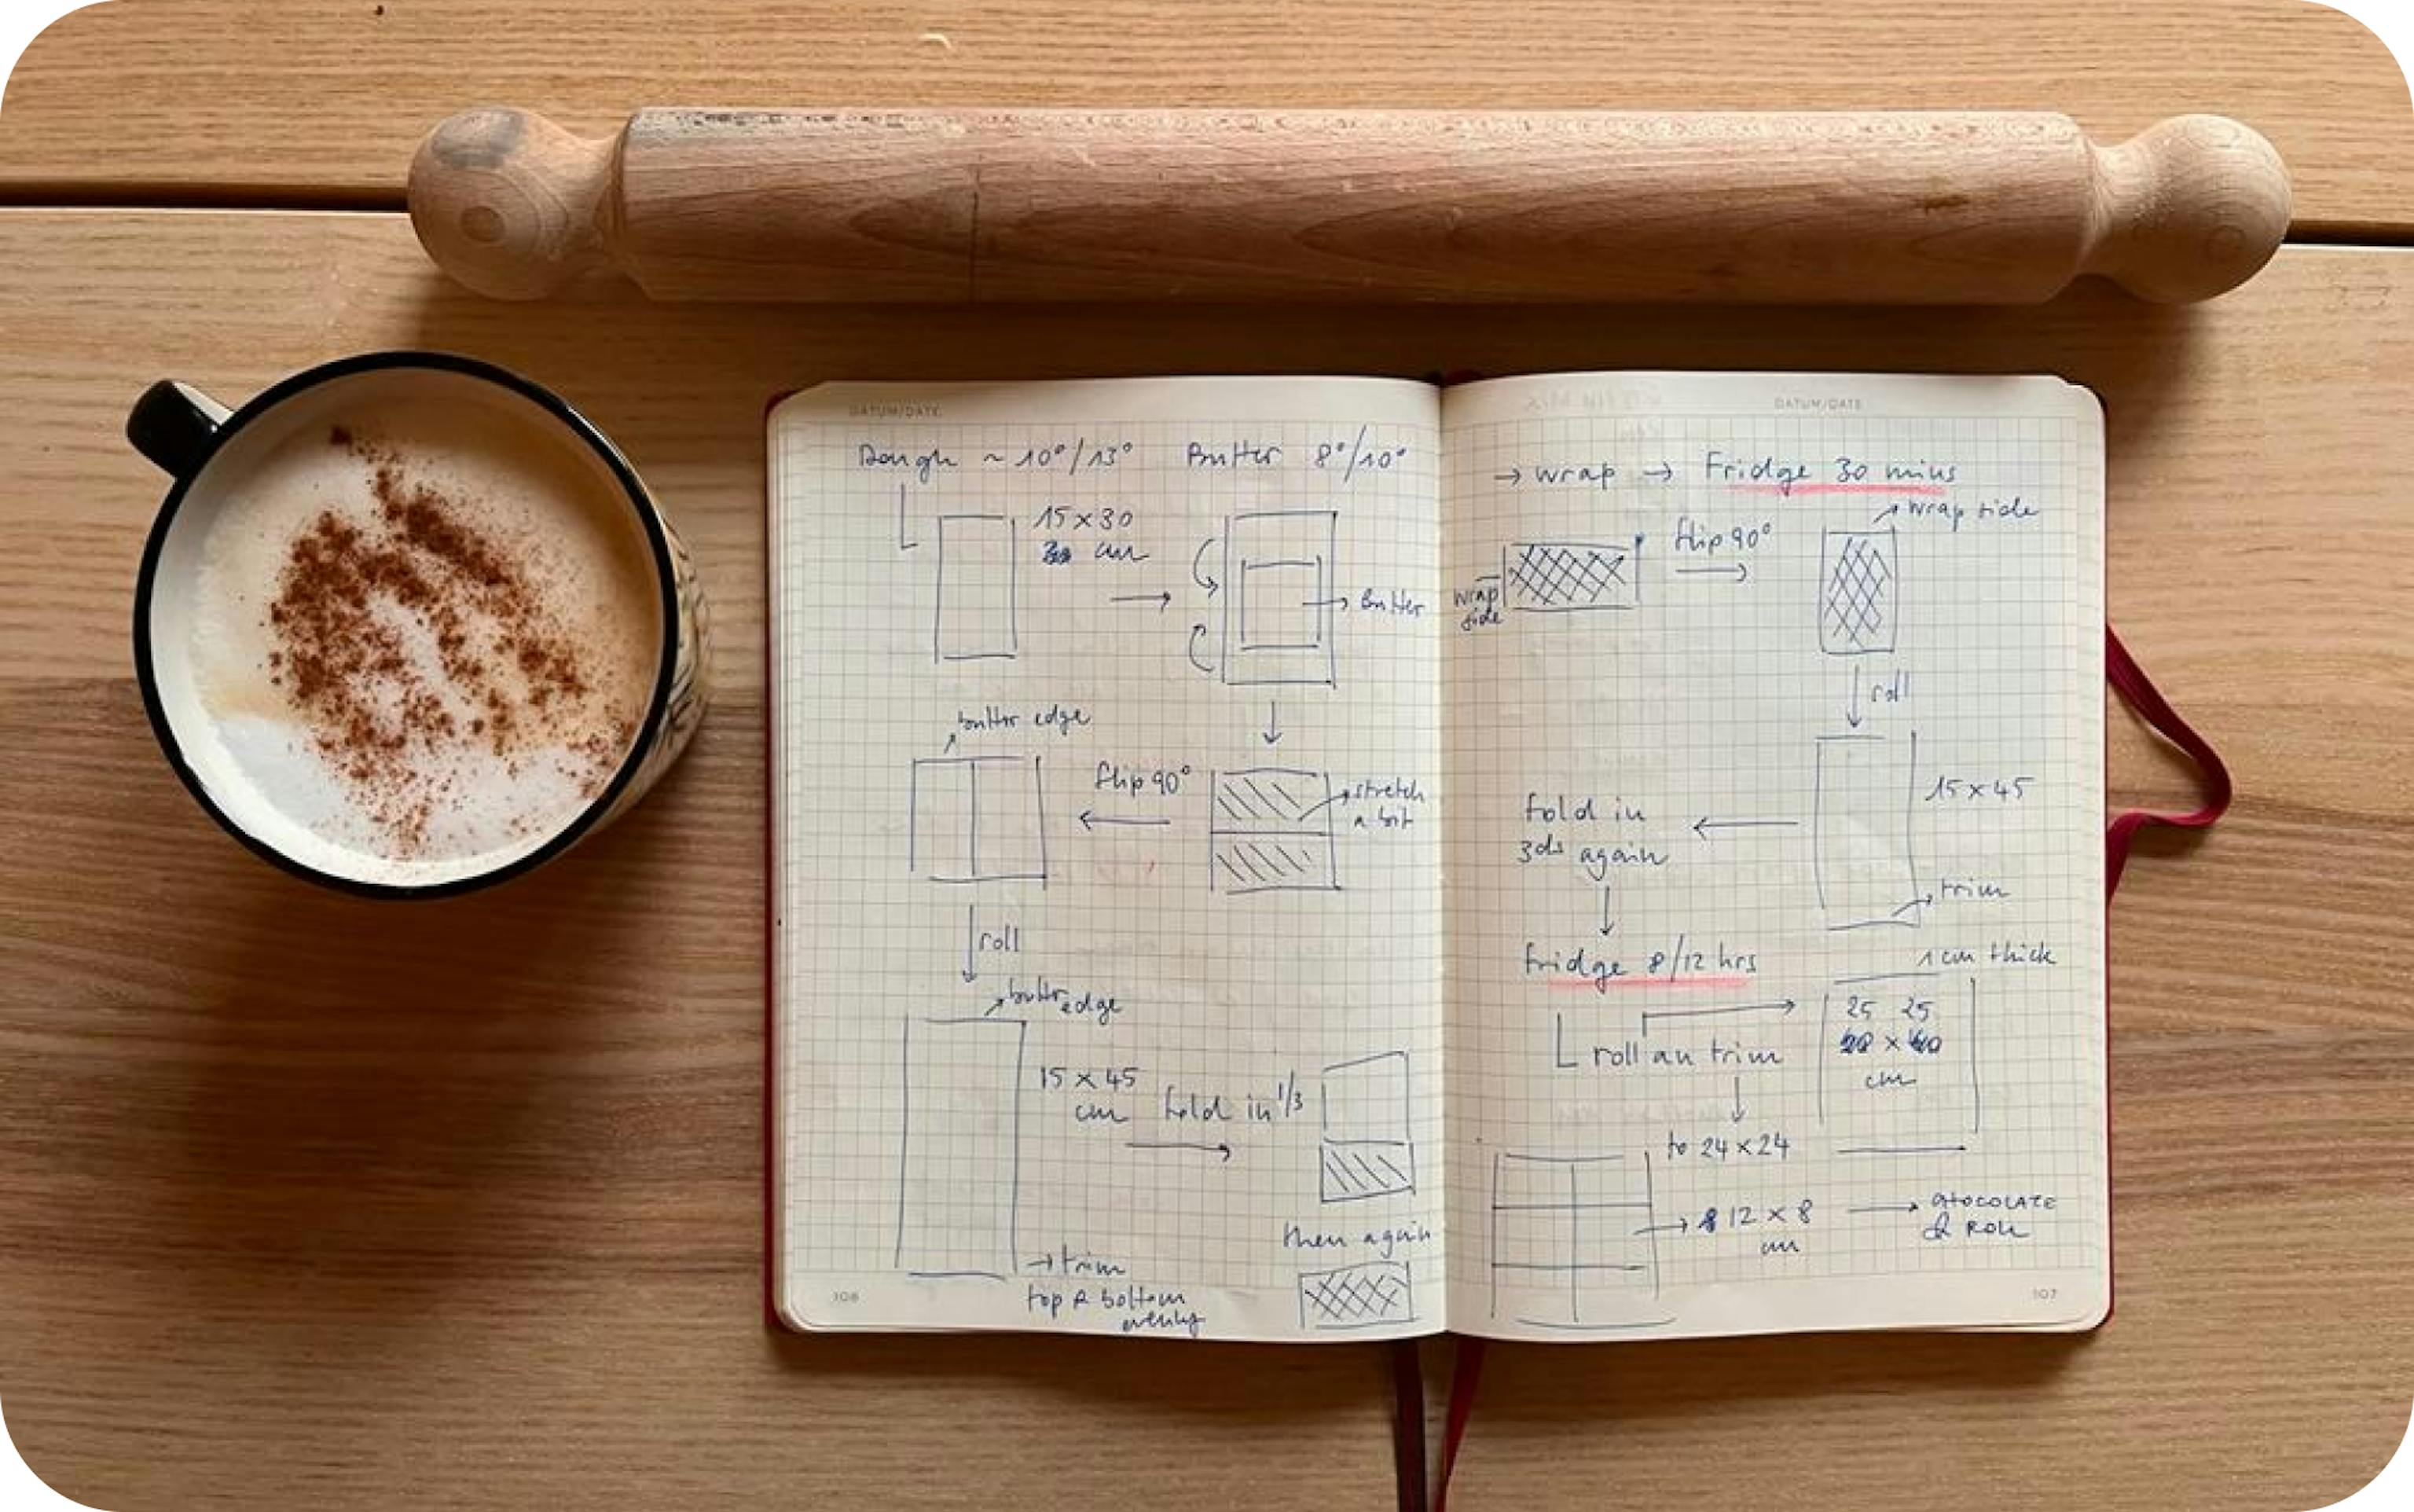 DATUM/DATE
Dough ~ 10°/13° Butter 8°/10°
15 x 30
cm
Butter
butter edge
flip 90°
stretch
a bit
roll
butter edge
15 x 45
cm
fold in 1/3
then again
→ trim
top & bottom
evenly
106
DATUM/DATE
→ wrap → Fridge 30 mins
wrap side
flip 90°
wrap
side
roll
15 x 45
fold in
3ds again
trim
Fridge 8/12 hrs
1 cm thick
25 25
x
cm
roll an trim
to 24 x 24
12 x 8
cm
CHOCOLATE
& ROLL
107